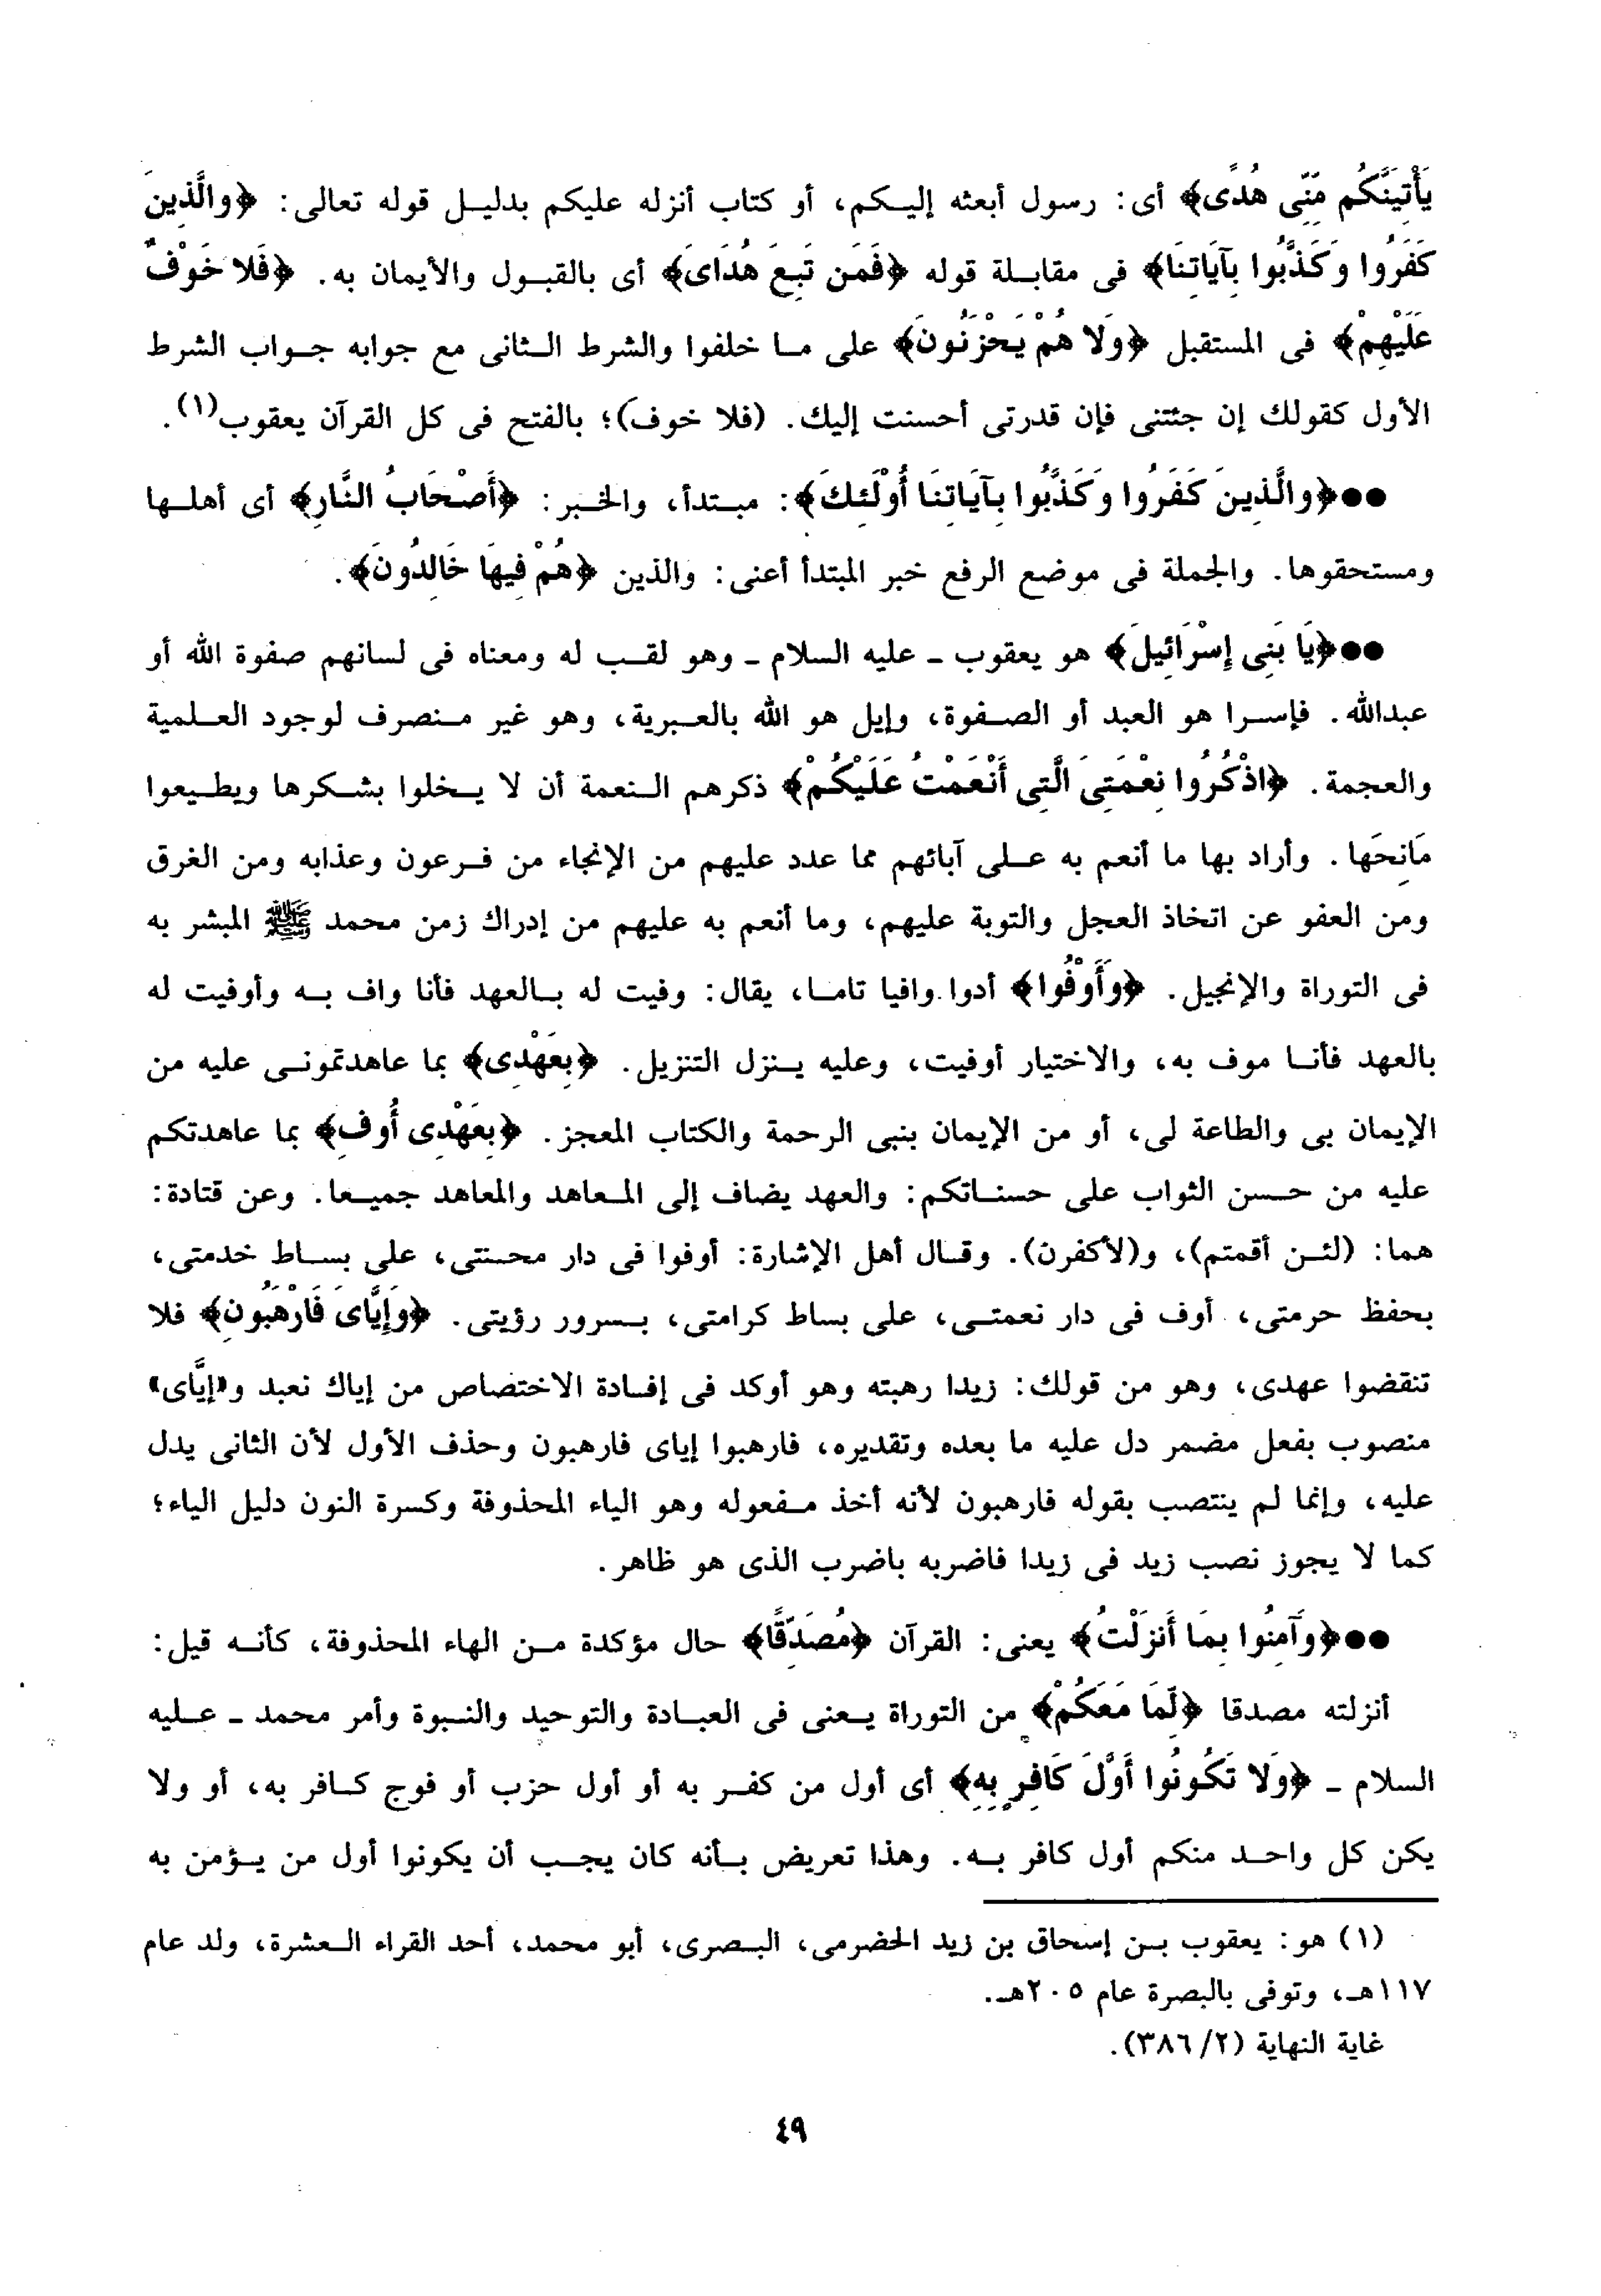 يَأْتِيَنَّكُم مِّنِّى هُدًى﴾ أى: رسول أبعثه إليكم، أو كتاب أنزله عليكم بدليل قوله تعالى: ﴿والَّذِينَ
كَفَرُوا وَكَذَّبُوا بِآيَاتِنَا﴾ فى مقابلة قوله ﴿فَمَن تَبِعَ هُدَاىَ﴾ أى بالقبول والأيمان به. ﴿فَلا خَوْفٌ
عَلَيْهِمْ﴾ فى المستقبل ﴿وَلا هُمْ يَحْزَنُونَ﴾ على ما خلفوا والشرط الثانى مع جوابه جواب الشرط
الأول كقولك إن جئتنى فإن قدرتى أحسنت إليك. (فلا خوفَ)؛ بالفتح فى كل القرآن يعقوب(١).
●●﴿والَّذِينَ كَفَرُوا وَكَذَّبُوا بِآيَاتِنَا أُوْلَئِكَ﴾: مبتدأ، والخبر: ﴿أَصْحَابُ النَّارِ﴾ أى أهلها
ومستحقوها. والجملة فى موضع الرفع خبر المبتدأ أعنى: والذين ﴿هُمْ فِيهَا خَالِدُونَ﴾.
●●﴿يَا بَنِى إِسْرَائِيلَ﴾ هو يعقوب ـ عليه السلام ـ وهو لقب له ومعناه فى لسانهم صفوة الله أو
عبدالله. فإسرا هو العبد أو الصفوة، وإيل هو الله بالعبرية، وهو غير منصرف لوجود العلمية
والعجمة. ﴿اذْكُرُوا نِعْمَتِىَ الَّتِى أَنْعَمْتُ عَلَيْكُمْ﴾ ذكرهم النعمة أن لا يخلوا بشكرها ويطيعوا
مَانِحَها. وأراد بها ما أنعم به على آبائهم مما عدد عليهم من الإنجاء من فرعون وعذابه ومن الغرق
ومن العفو عن اتخاذ العجل والتوبة عليهم، وما أنعم به عليهم من إدراك زمن محمد ﷺ المبشر به
فى التوراة والإنجيل. ﴿وَأَوْفُوا﴾ أدوا وافيا تاما، يقال: وفيت له بالعهد فأنا واف به وأوفيت له
بالعهد فأنا موف به، والاختيار أوفيت، وعليه ينزل التنزيل. ﴿بِعَهْدِى﴾ بما عاهدتمونى عليه من
الإيمان بى والطاعة لى، أو من الإيمان بنبى الرحمة والكتاب المعجز. ﴿بِعَهْدِى أُوفِ﴾ بما عاهدتكم
عليه من حسن الثواب على حسناتكم: والعهد يضاف إلى المعاهد والمعاهد جميعا. وعن قتادة:
هما: (لئن أقمتم)، و(لأكفرن). وقال أهل الإشارة: أوفوا فى دار محنتى، على بساط خدمتى،
بحفظ حرمتى، أوف فى دار نعمتى، على بساط كرامتى، بسرور رؤيتى. ﴿وَإِيَّاىَ فَارْهَبُونِ﴾ فلا
تنقضوا عهدى، وهو من قولك: زيدا رهبته وهو أوكد فى إفادة الاختصاص من إياك نعبد و«إيَّاى»
منصوب بفعل مضمر دل عليه ما بعده وتقديره، فارهبوا إياى فارهبون وحذف الأول لأن الثانى يدل
عليه، وإنما لم ينتصب بقوله فارهبون لأنه أخذ مفعوله وهو الياء المحذوفة وكسرة النون دليل الياء؛
كما لا يجوز نصب زيد فى زيدا فاضربه باضرب الذى هو ظاهر.
●●﴿وَآمِنُوا بِمَا أَنزَلْتُ﴾ يعنى: القرآن ﴿مُصَدِّقًا﴾ حال مؤكدة من الهاء المحذوفة، كأنه قيل:
أنزلته مصدقا ﴿لِّمَا مَعَكُمْ﴾ من التوراة يعنى فى العبادة والتوحيد والنبوة وأمر محمد ـ عليه
السلام ـ ﴿وَلا تَكُونُوا أَوَّلَ كَافِرٍ بِهِ﴾ أى أول من كفر به أو أول حزب أو فوج كافر به، أو ولا
يكن كل واحد منكم أول كافر به. وهذا تعريض بأنه كان يجب أن يكونوا أول من يؤمن به
(١) هو: يعقوب بن إسحاق بن زيد الحضرمى، البصرى، أبو محمد، أحد القراء العشرة، ولد عام
١١٧هـ، وتوفى بالبصرة عام ٢٠٥هـ.
غاية النهاية (٣٨٦/٢).
٤٩